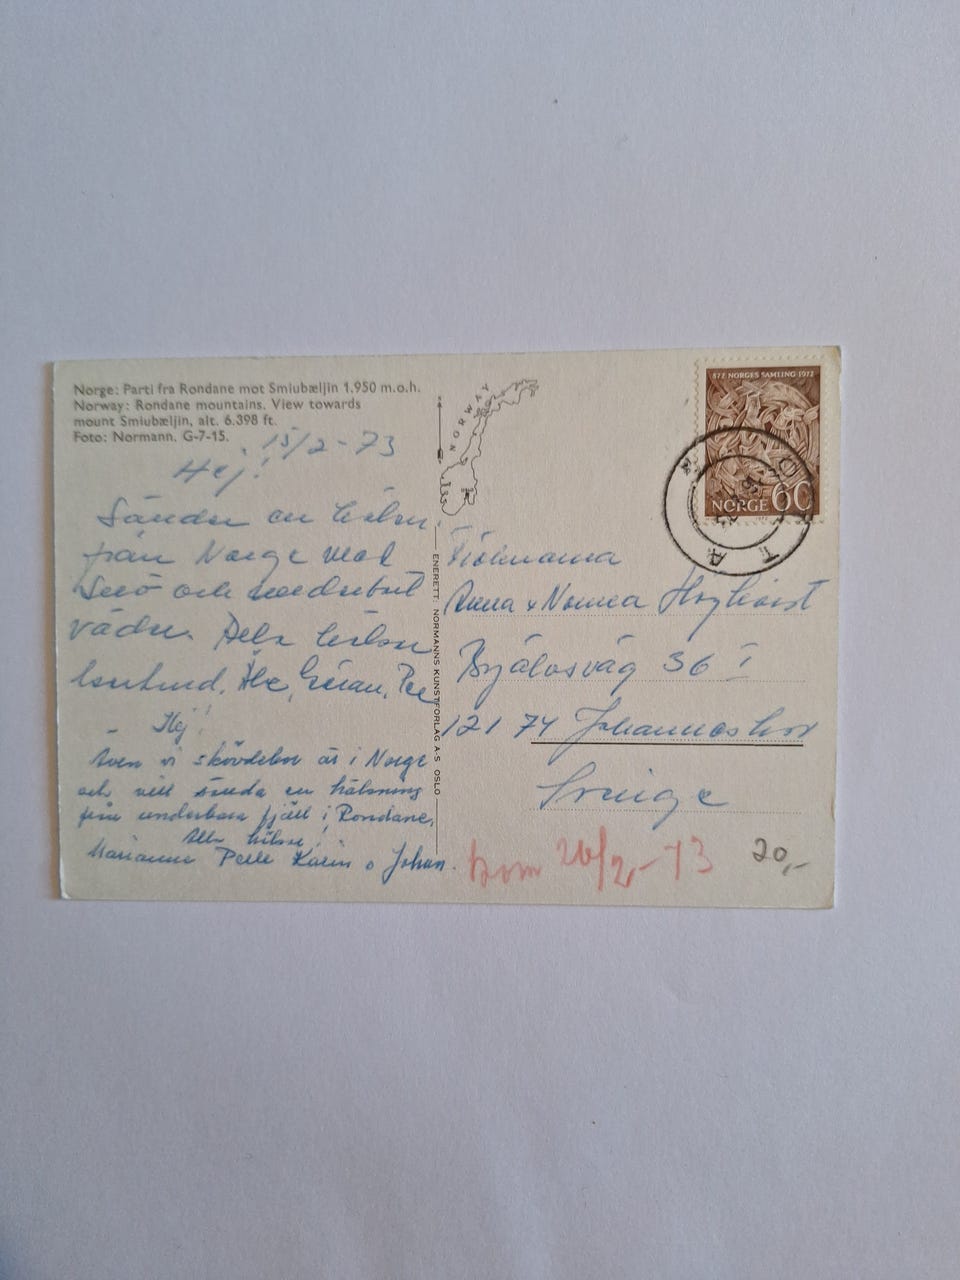 Norge: Parti fra Rondane mot Smiubæljin 1.950 m.o.h.
Norway: Rondane mountains. View towards
mount Smiubæljin, alt. 6.398 ft.
Foto: Normann. G-7-15.
15/2-73
Hej!
Sänder en hälsn.
från Norge med
Snö och underbart
väder.
Hej!
Även vi skövdebor är i Norge
och vill sända en hälsning
från underbara fjäll i Rondane.
Marianne Pelle Karin o Johan.
NORWAY
ENERETT: NORMANNS KUNSTFORLAG A-S OSLO
872 NORGES SAMLING 1972
NORGE 60
1972
Anna
Bjälosväg 36 I
121 74 Johanneshov
Sverige
kom 26/2-73
20,-